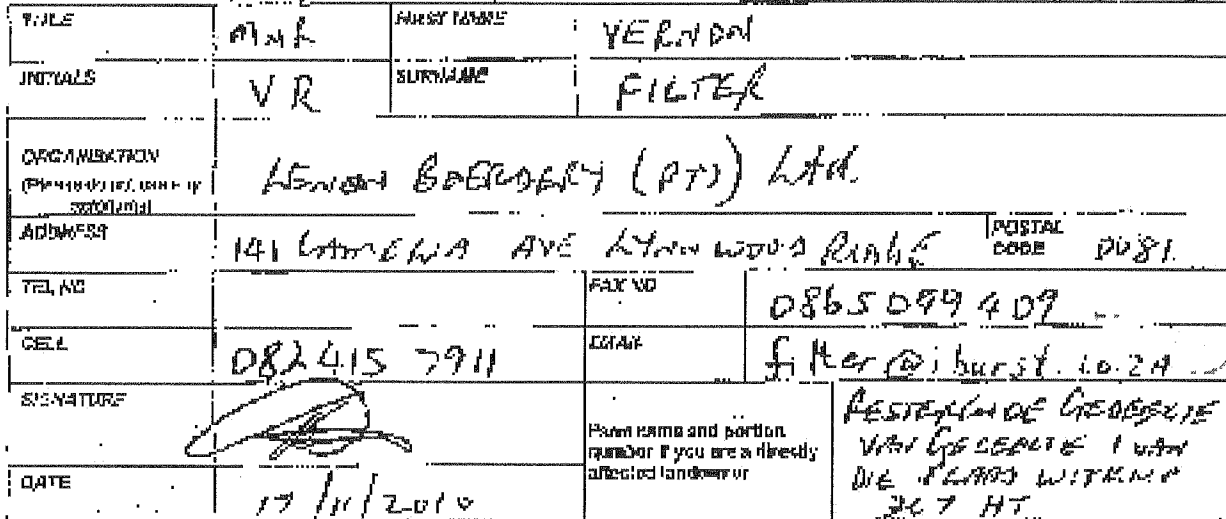 TITLE MNR FIRST NAME VERNON
INITIALS VR SURNAME FILTER
ORGANISATION BOERDERY (PTY) Ltd.
ADDRESS 141 CAMELIA AVE LYNNWOOD RIDGE POSTAL CODE 0081
TEL NO FAX NO 0865099409
CELL 082 415 7911 EMAIL filter@iburst.co.za
SIGNATURE
Farm name and portion number if you are a directly affected landowner
RESTERENDE GEDEELTE
VAN GEDEELTE 1 VAN
DIE PLAAS
HT
DATE 17/11/2010